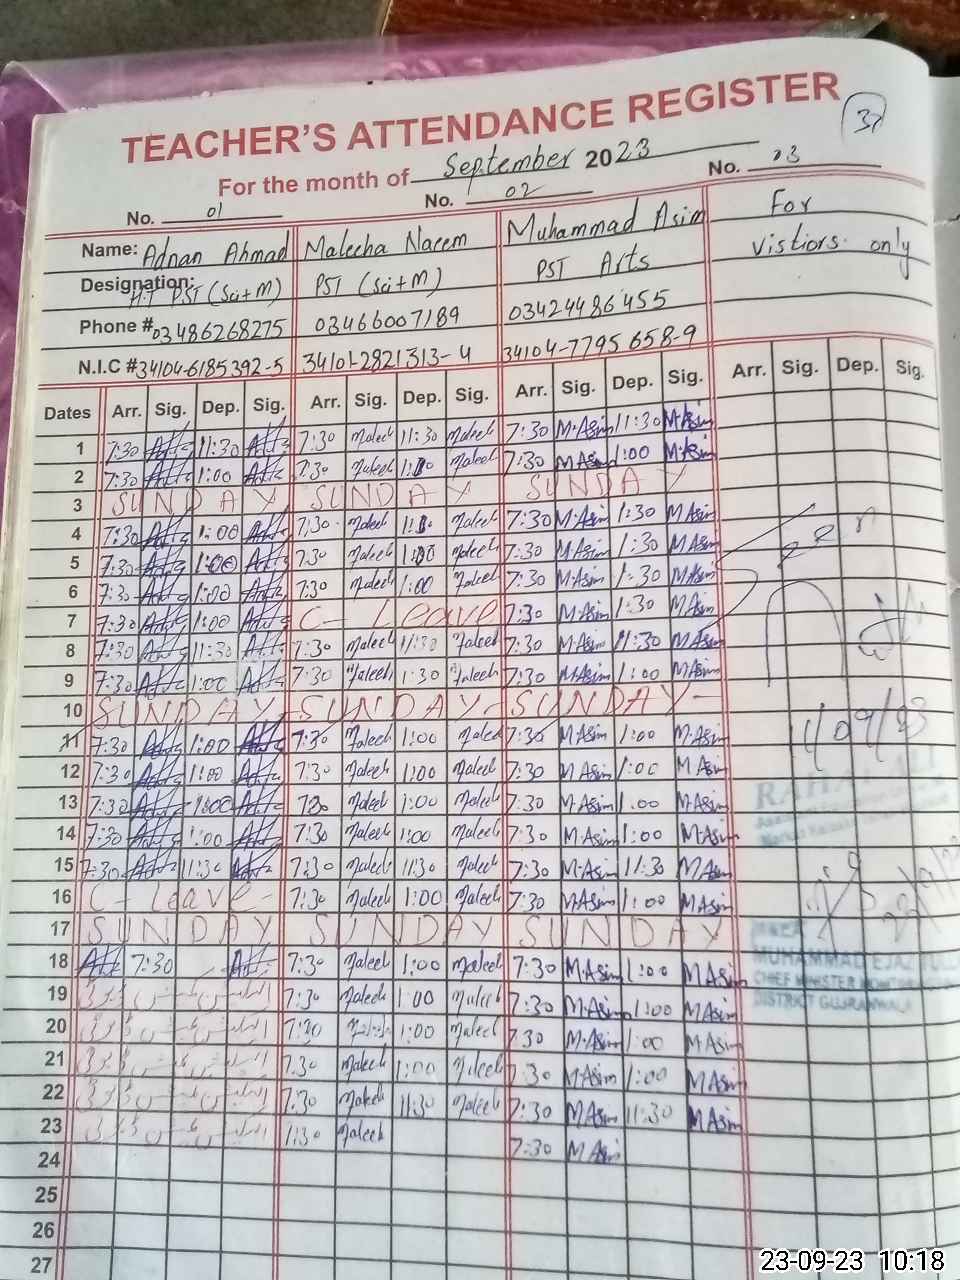 TEACHER'S ATTENDANCE REGISTER
For the month of September 2023
No. 01 No. 02 No. 03
Name: Adnan Ahmad Maleeha Naeem Muhammad Asim For
Designation: H.T PST (Sci+M) PST (Sci+M) PST Arts vistiors only
Phone # 03486268275 03466007189 03424486455
N.I.C # 34104-6185392-5 34101-2821313-4 34104-7795658-9
Dates Arr. Sig. Dep. Sig. Arr. Sig. Dep. Sig. Arr. Sig. Dep. Sig. Arr. Sig. Dep. Sig.
1 7:30 11:30 7:30 Maleeh 11:30 Maleeh 7:30 M·Asim 11:30 M·Asim
2 7:30 1:00 7:30 Maleeh Maleeh 7:30 M·Asim 1:00 M·Asim
3 SUNDAY SUNDAY SUNDAY
4 7:30 1:00 7:30 Maleeh Maleeh 7:30 M·Asim 1:30 M·Asim
5 7:30 1:00 7:30 Maleeh 1:00 Maleeh 7:30 M·Asim 1:30 M·Asim
6 7:30 1:00 7:30 Maleeh 1:00 Maleeh 7:30 M·Asim 1:30 M·Asim
7 7:30 1:00 C- Leave 7:30 M·Asim 1:30 M·Asim
8 7:30 11:30 7:30 Maleeh 11:30 Maleeh 7:30 M·Asim 11:30 M·Asim
9 7:30 1:00 7:30 Maleeh 1:30 Maleeh 7:30 M·Asim 1:00 M·Asim
10 SUNDAY - SUNDAY - SUNDAY -
11 7:30 1:00 7:30 Maleeh 1:00 Maleeh 7:30 M·Asim 1:00 M·Asim
11/09/23
12 7:30 1:00 7:30 Maleeh 1:00 Maleeh 7:30 M·Asim 1:00 M·Asim
13 7:30 1:00 7:30 Maleeh 1:00 Maleeh 7:30 M·Asim 1:00 M·Asim
14 7:30 1:00 7:30 Maleeh 1:00 Maleeh 7:30 M·Asim 1:00 M·Asim
15 7:30 11:30 7:30 Maleeh 11:30 Maleeh 7:30 M·Asim 11:30 M·Asim
16 C- Leave - 7:30 Maleeh 1:00 Maleeh 7:30 M·Asim 1:00 M·Asim
17 SUNDAY SUNDAY SUNDAY
18 7:30 7:30 Maleeh 1:00 Maleeh 7:30 M·Asim 1:00 M·Asim
MUHAMMAD EJAZ
CHIEF MINISTER
DISTRICT GUJRANWALA
19 7:30 Maleeh 1:00 Maleeh 7:30 M·Asim 1:00 M·Asim
20 7:30 1:00 Maleeh 7:30 M·Asim 1:00 M·Asim
21 7:30 Maleeh 1:00 Maleeh 7:30 M·Asim 1:00 M·Asim
22 7:30 Maleeh 11:30 Maleeh 7:30 M·Asim 11:30 M·Asim
23 Maleeh 7:30 M Asim
24
25
26
27
23-09-23 10:18